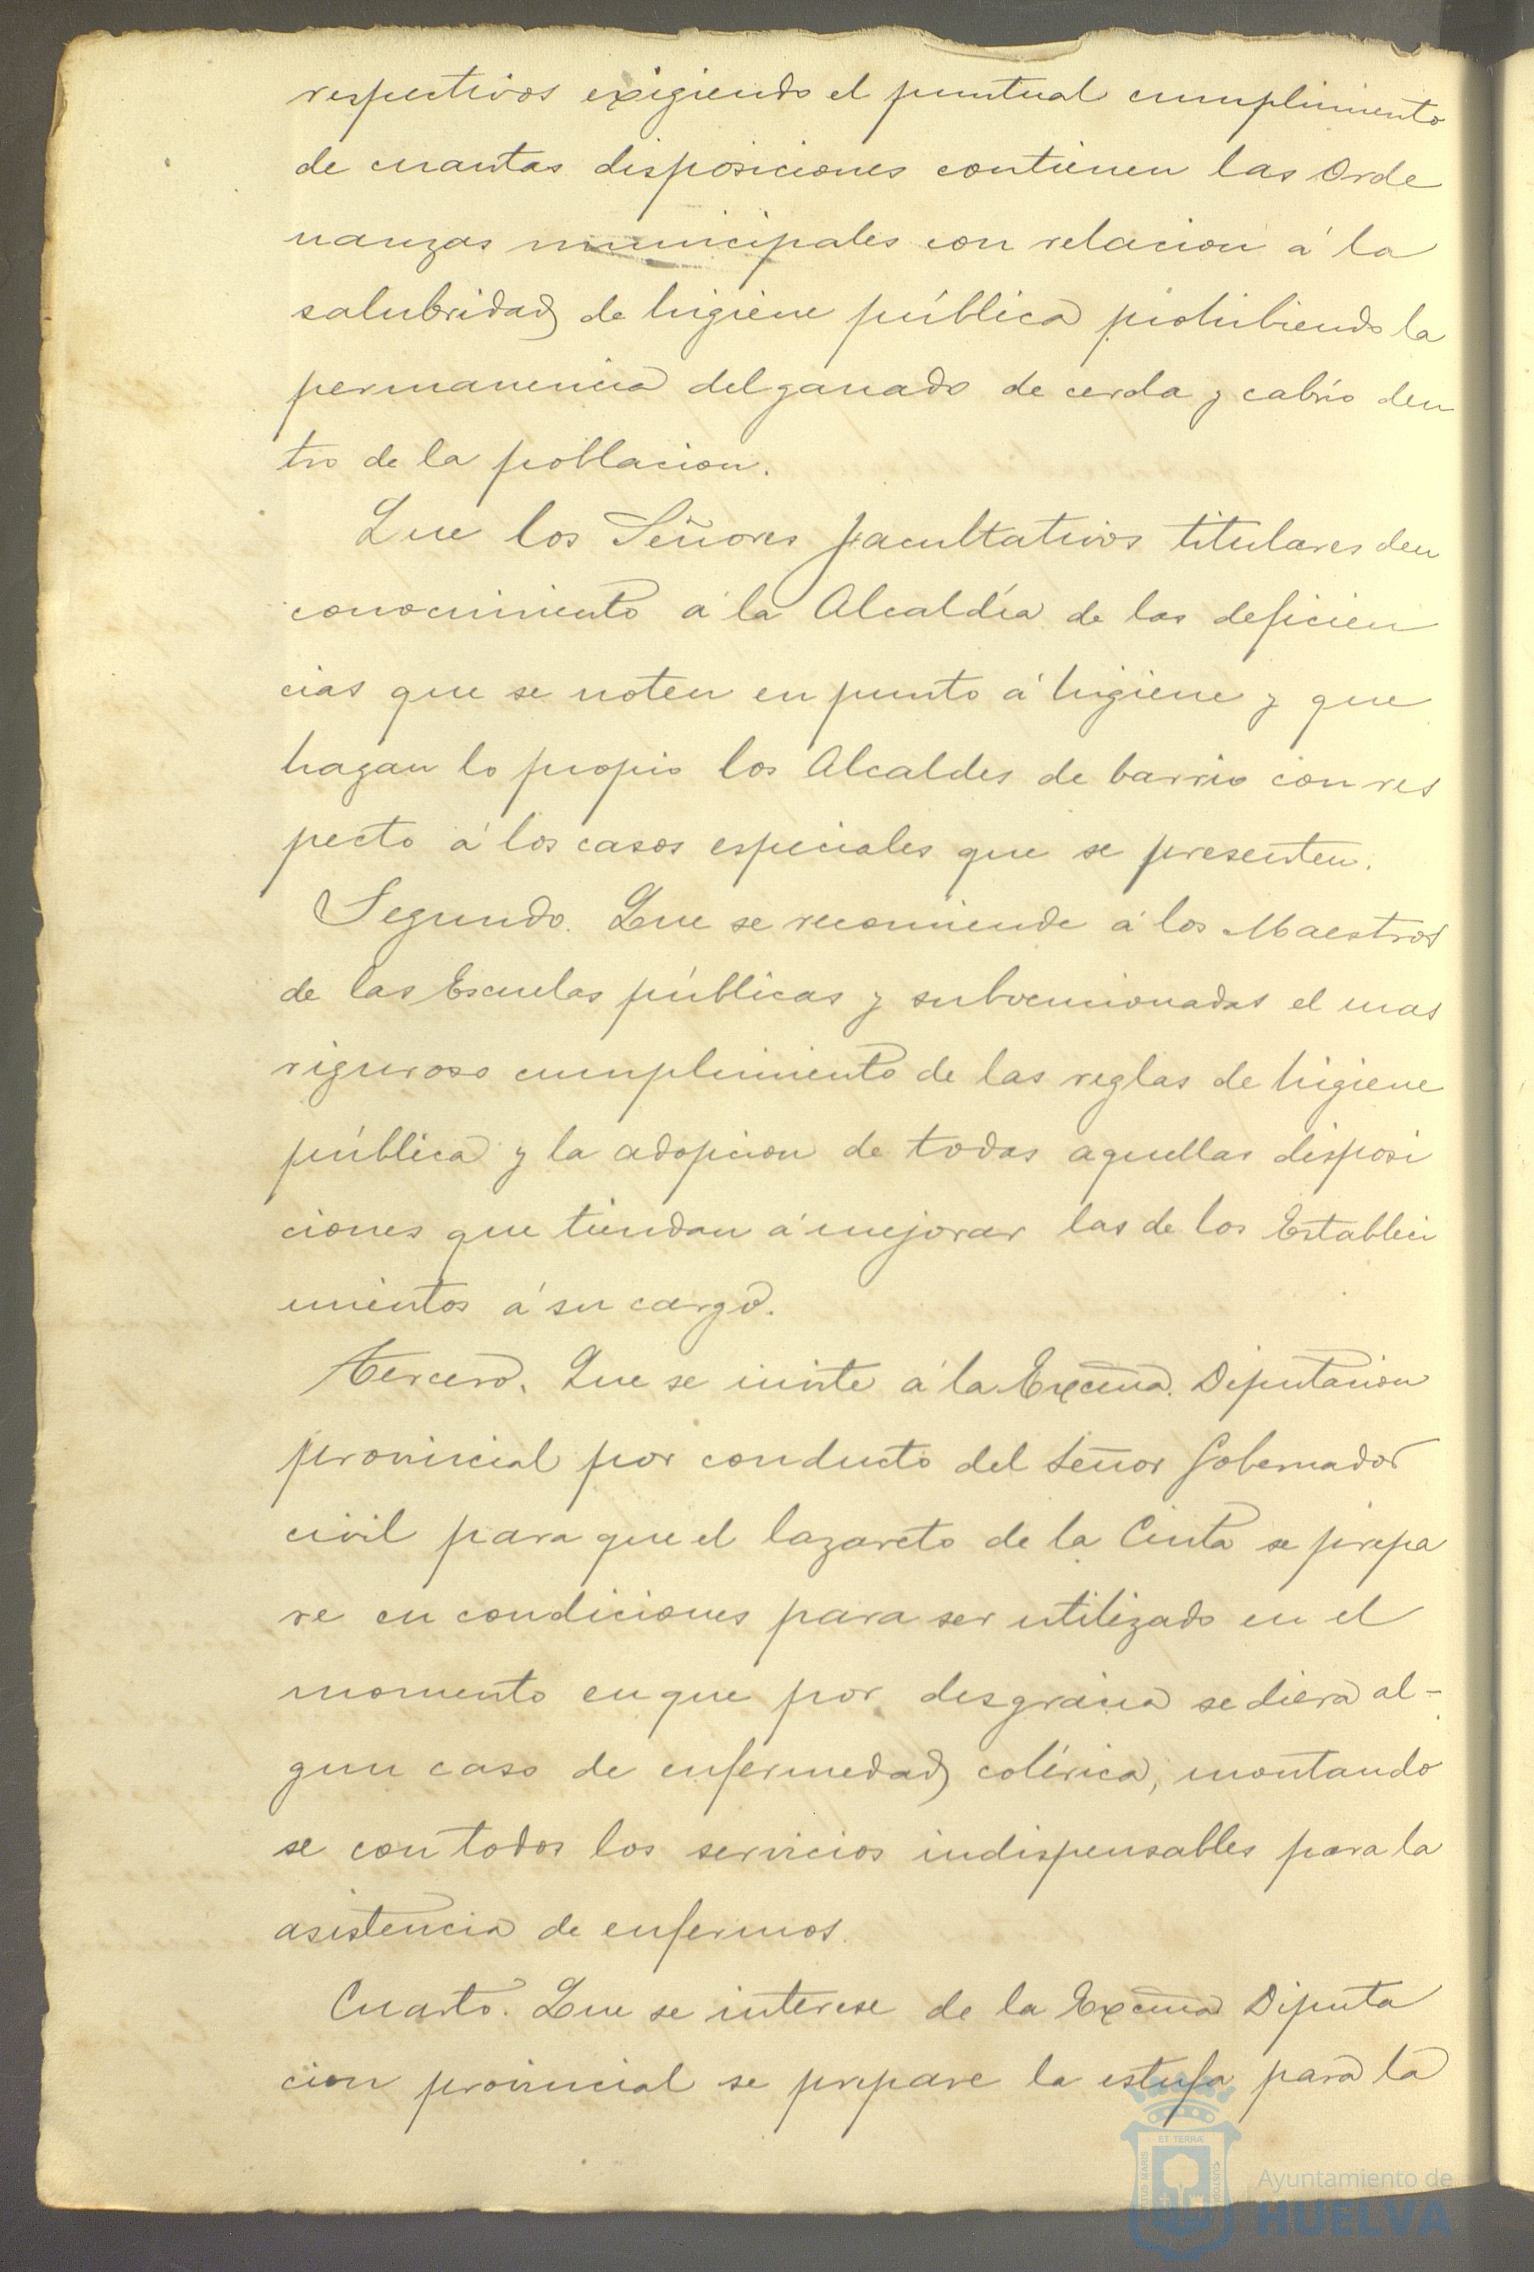 respectivos exigiendo el puntual cumplimiento
de cuantas disposiciones contienen las Orde
nanzas municipales con relacion á la
salubridad de higiene pública prohibiendo la
permanencia del ganado de cerda y cabrío den
tro de la poblacion.
Que los Señores facultativos titulares den
conocimiento á la Alcaldía de las deficien
cias que se noten en punto á higiene y que
hagan lo propio los Alcaldes de barrio con res
pecto á los casos especiales que se presenten.
Segundo. Que se recomiende á los Maestros
de las Escuelas públicas y subvencionadas el mas
riguroso cumplimiento de las reglas de higiene
pública y la adopcion de todas aquellas disposi
ciones que tiendan á mejorar las de los Estableci
mientos á su cargo.
Tercero. Que se invite á la Excma. Diputacion
provincial por conducto del Señor Gobernador
civil para que el lazareto de la Cinta se prepa
re en condiciones para ser utilizado en el
momento en que por desgracia se diera al-
gun caso de enfermedad colérica, montando
se con todos los servicios indispensables para la
asistencia de enfermos.
Cuarto. Que se interese de la Excma Diputa
cion provincial se prepare la estufa para la
ET TERRÆ
PORTUS MARIS
CUSTODIA
Ayuntamiento de
HUELVA